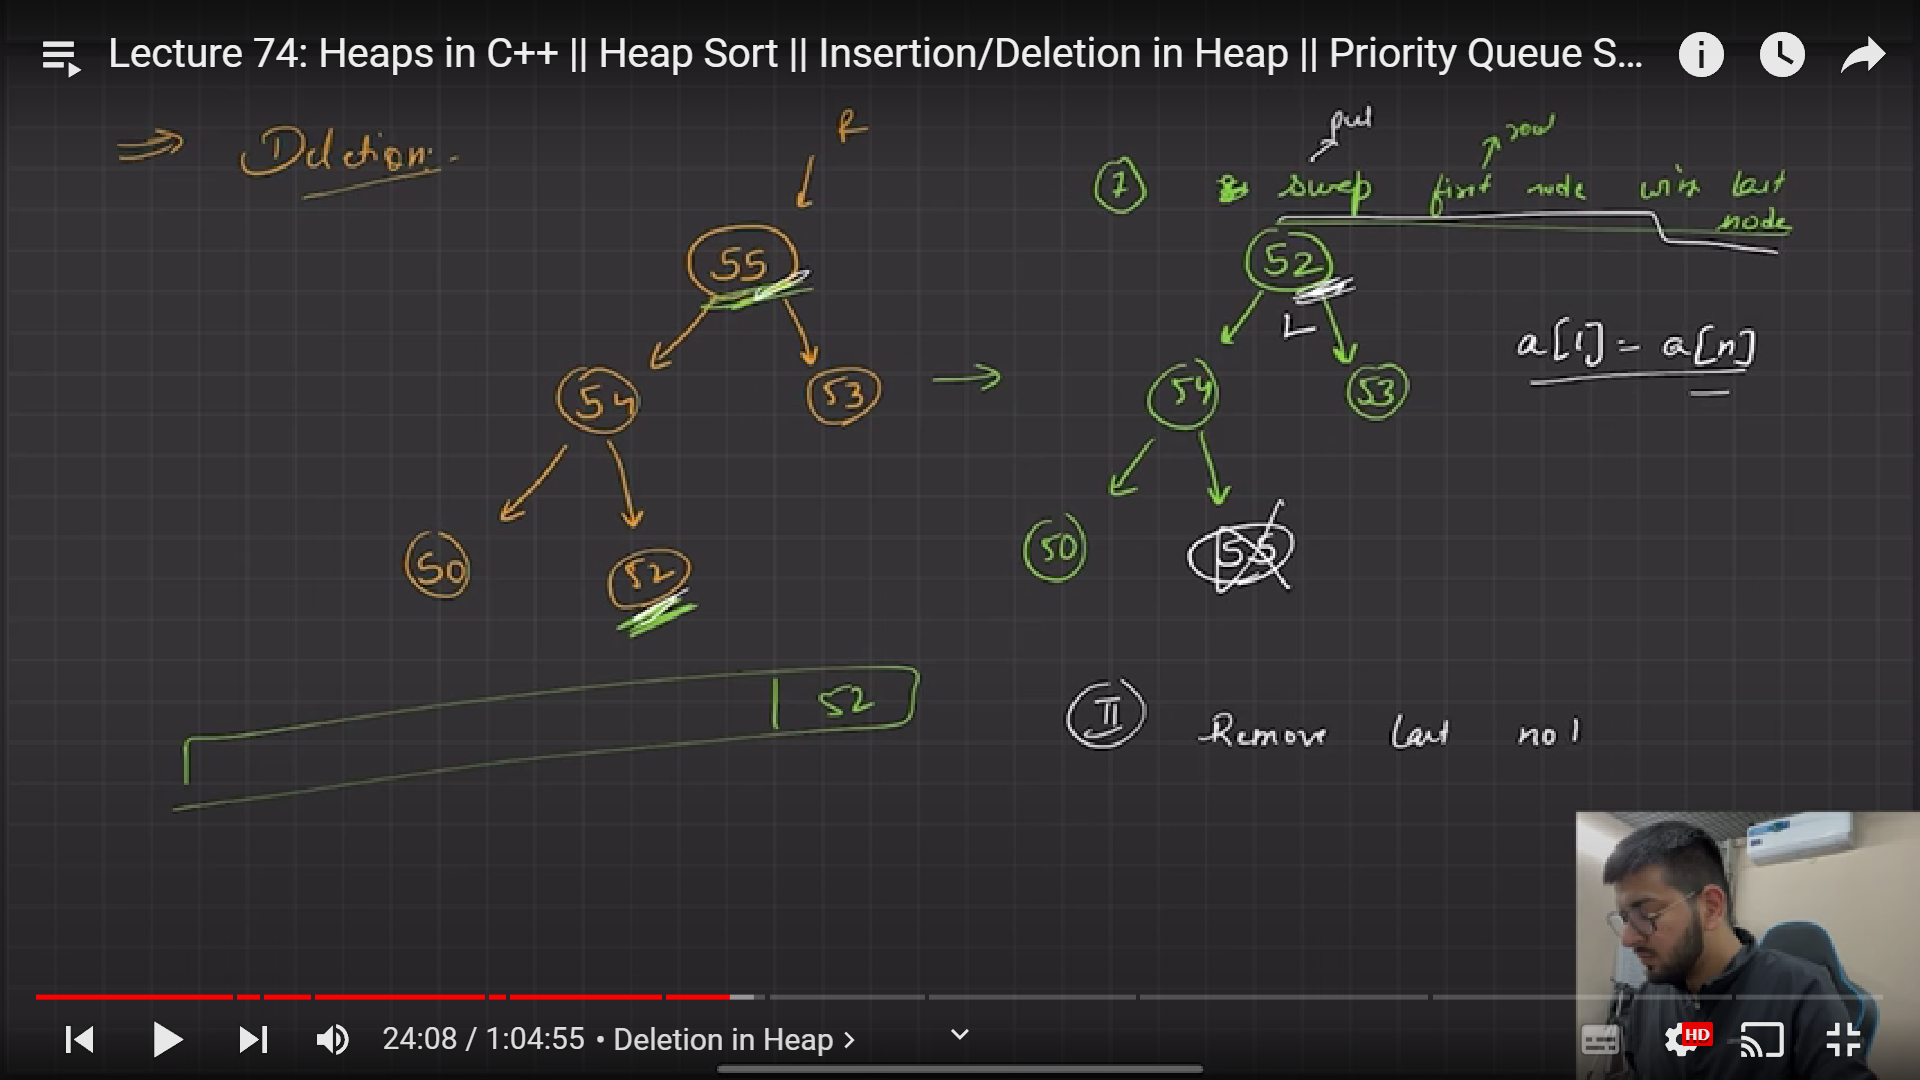 Lecture 74: Heaps in C++ || Heap Sort || Insertion/Deletion in Heap || Priority Queue S...
⇒ Deletion:-
R
put
root
1 swap first node with last
node
55
52
L
a[1] = a[n]
54
53
54
53
50
52
50
55
52
II Remove last no
24:08 / 1:04:55 • Deletion in Heap >
HD